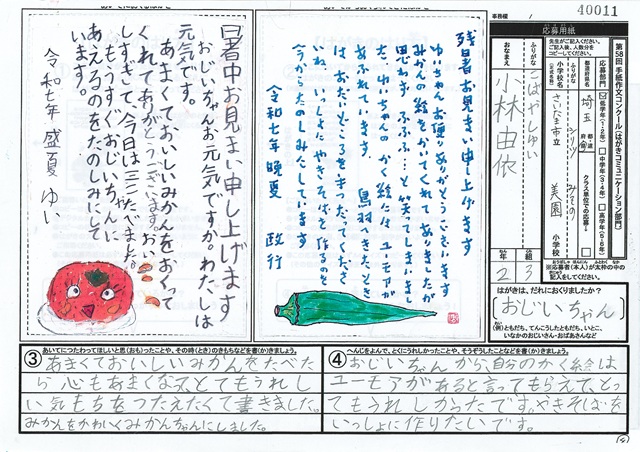 40011
応募用紙
第58回 手紙作文コンクール(はがきコミュニケーション部門)
先生がご記入ください。
ご記入後、人数分をコピーしてください。
応募部門
低学年(1・2年)
中学年(3・4年)
高学年(5・6年)
クラス単位での応募
都道府県名
埼玉
小学校名
さいたま市立
美園
小学校
ふりがな
こばやしゆい
おなまえ
小林由依
2年
3組
※応募者(本人)が太枠の中の記入をしてください。
はがきは、だれにおくりましたか?
おじいちゃん
(例)ともだち、てんこうしたともだち、いとこ、いなかのおじいさん・おばあさんなど
残暑お見まい申し上げます
ゆいちゃんお便りありがとうございます
みかんの絵をかいてくれてありましたが
思わず、ふふふ…と笑ってしまいまし
た。ゆいちゃんのかく絵にはユーモアが
あふれています。鳥羽へきたときは
おだいどころを手つだってくださ
いね。いっしょにやきそばを作るのを
今からたのしみにしています
令和七年晩夏 政行
暑中お見まい申し上げます
おじいちゃんお元気ですか。わたしは
元気です。
あまくておいしいみかんをおくって
くれてありがとうございます。おい
しすぎて、今日は三こたべました。
もうすぐおじいちゃんに
あえるのをたのしみにして
います。
令和七年 盛夏 ゆい
③ あいてにつたわってほしいと思(おも)ったことや、その時(とき)のきもちなどを書(か)きましょう。
あまくておいしいみかんをたべた
ら心もあまくな気とてもうれし
い気もちをつたえたくて書きました。
みかんをかわいくみかんちゃんにしました。
④ へんじをよんで、とくにうれしかったことや、そうぞうしたことなどを書(か)きましょう。
おじいちゃんから、自分のかく絵は
ユーモアがあると言ってもらえて、とっ
てもうれしかったです。やきそばを
いっしょに作りたいです。